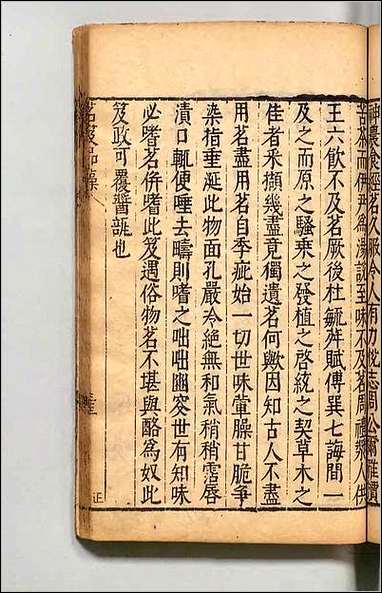 神農食經茗久服令人有力悅志周公爾雅檟
苦茶而伊尹爲湯說至味不及茗周禮漿人供
王六飲不及茗厥後杜毓舜賦傅巽七誨間一
及之而原之騷乗之發植之啓統之契草木之
佳者采擷幾盡竟獨遺茗何歟因知古人不盡
用茗盡用茗自季疵始一切世味葷臊甘脆爭
染指垂涎此物面孔嚴冷絶無和氣稍稍霑唇
漬口輒便唾去疇則嗜之咄咄幽突世有知味
必嗜茗併嗜此笈遇俗物茗不堪與酪爲奴此
笈政可覆醬瓿也
茗笈品藻
正